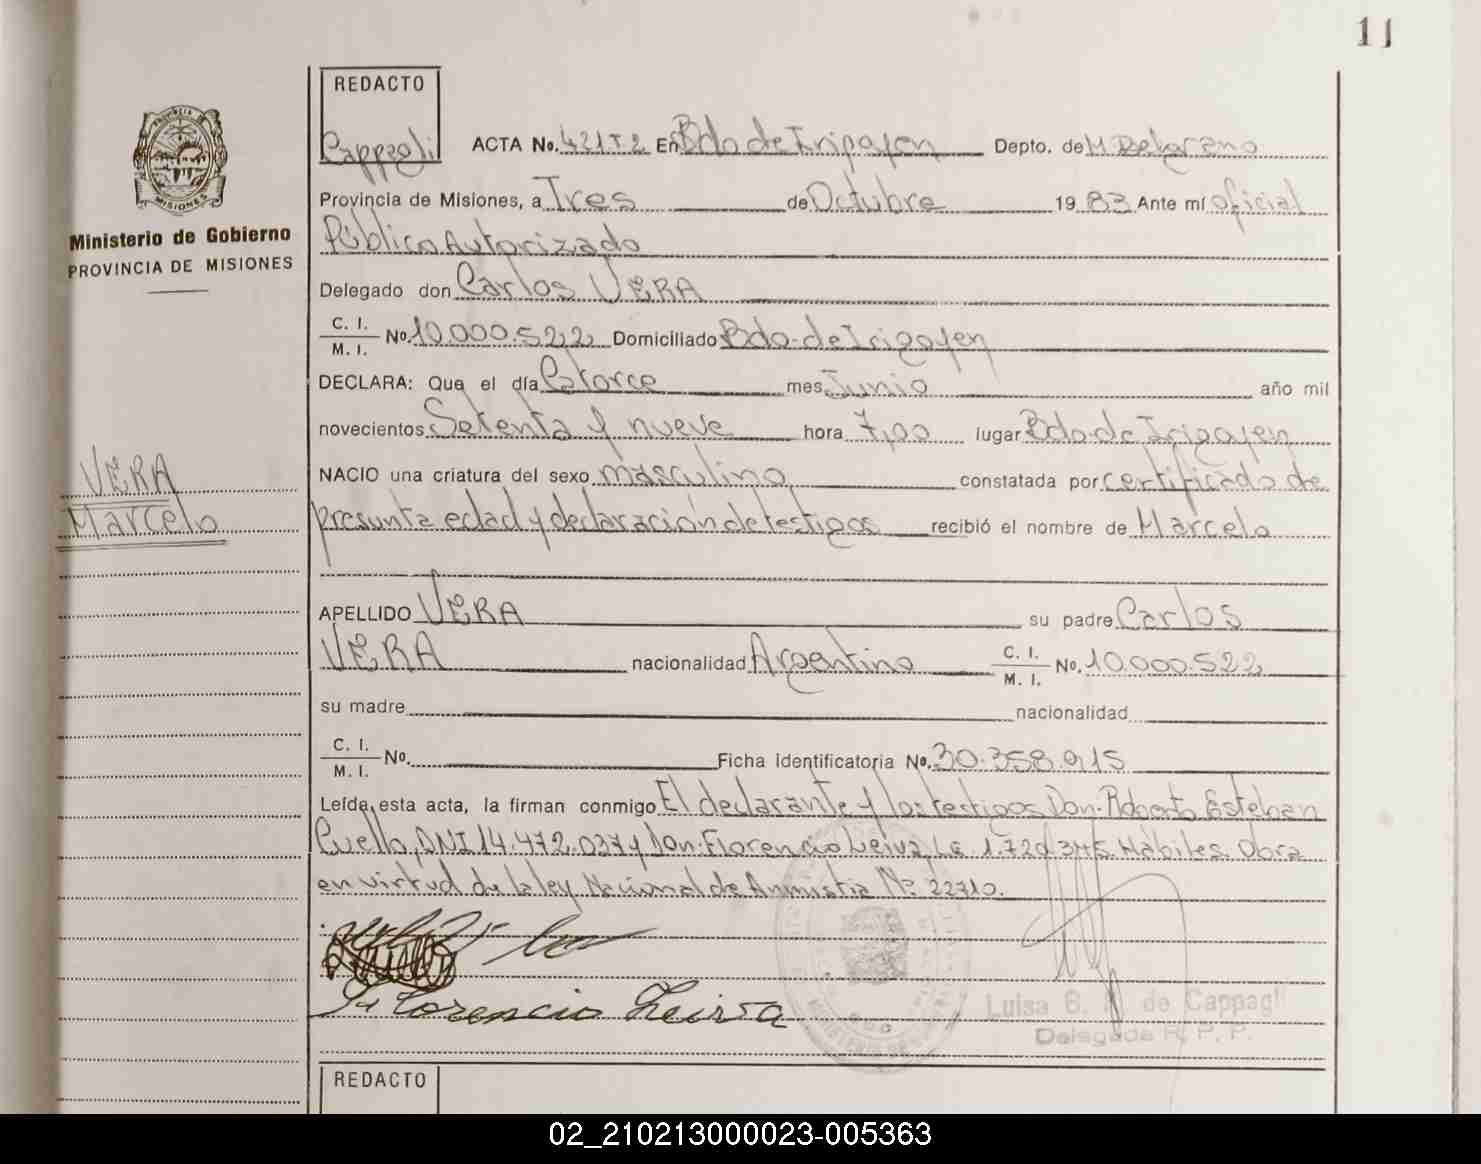 11
REDACTO
Cappagli ACTA No. 421 T2 En Bdo de Irigoyen Depto. de M Belgrano
PROVINCIA DE MISIONES
Provincia de Misiones, a Tres de Octubre 1983 Ante mí Oficial
Ministerio de Gobierno
PROVINCIA DE MISIONES
Público Autorizado
Delegado don Carlos VERA
C. I. / M. I. No. 10.000.522 Domiciliado Bdo. de Irigoyen
DECLARA: Que el día Catorce mes Junio año mil
novecientos Setenta y nueve hora 7,00 lugar Bdo. de Irigoyen
VERA
Marcelo
NACIO una criatura del sexo masculino constatada por certificado de
presunta edad y declaración de testigos recibió el nombre de Marcelo
APELLIDO VERA su padre Carlos
VERA nacionalidad Argentino C. I. / M. I. No. 10.000.522
su madre nacionalidad
C. I. / M. I. No. Ficha identificatoria No. 30.358.915
Leída esta acta, la firman conmigo El declarante y los testigos Don. Roberto Esteban
Cuello, DNI 14.472.037 y Don. Florencio Leiva Le Hábiles. Obra
en virtud de la ley Nacional de Amnistia Nº 22710.
Florencio Leiva
Luisa B. de Cappagli
Delegada R. P. P.
REDACTO
02_210213000023-005363